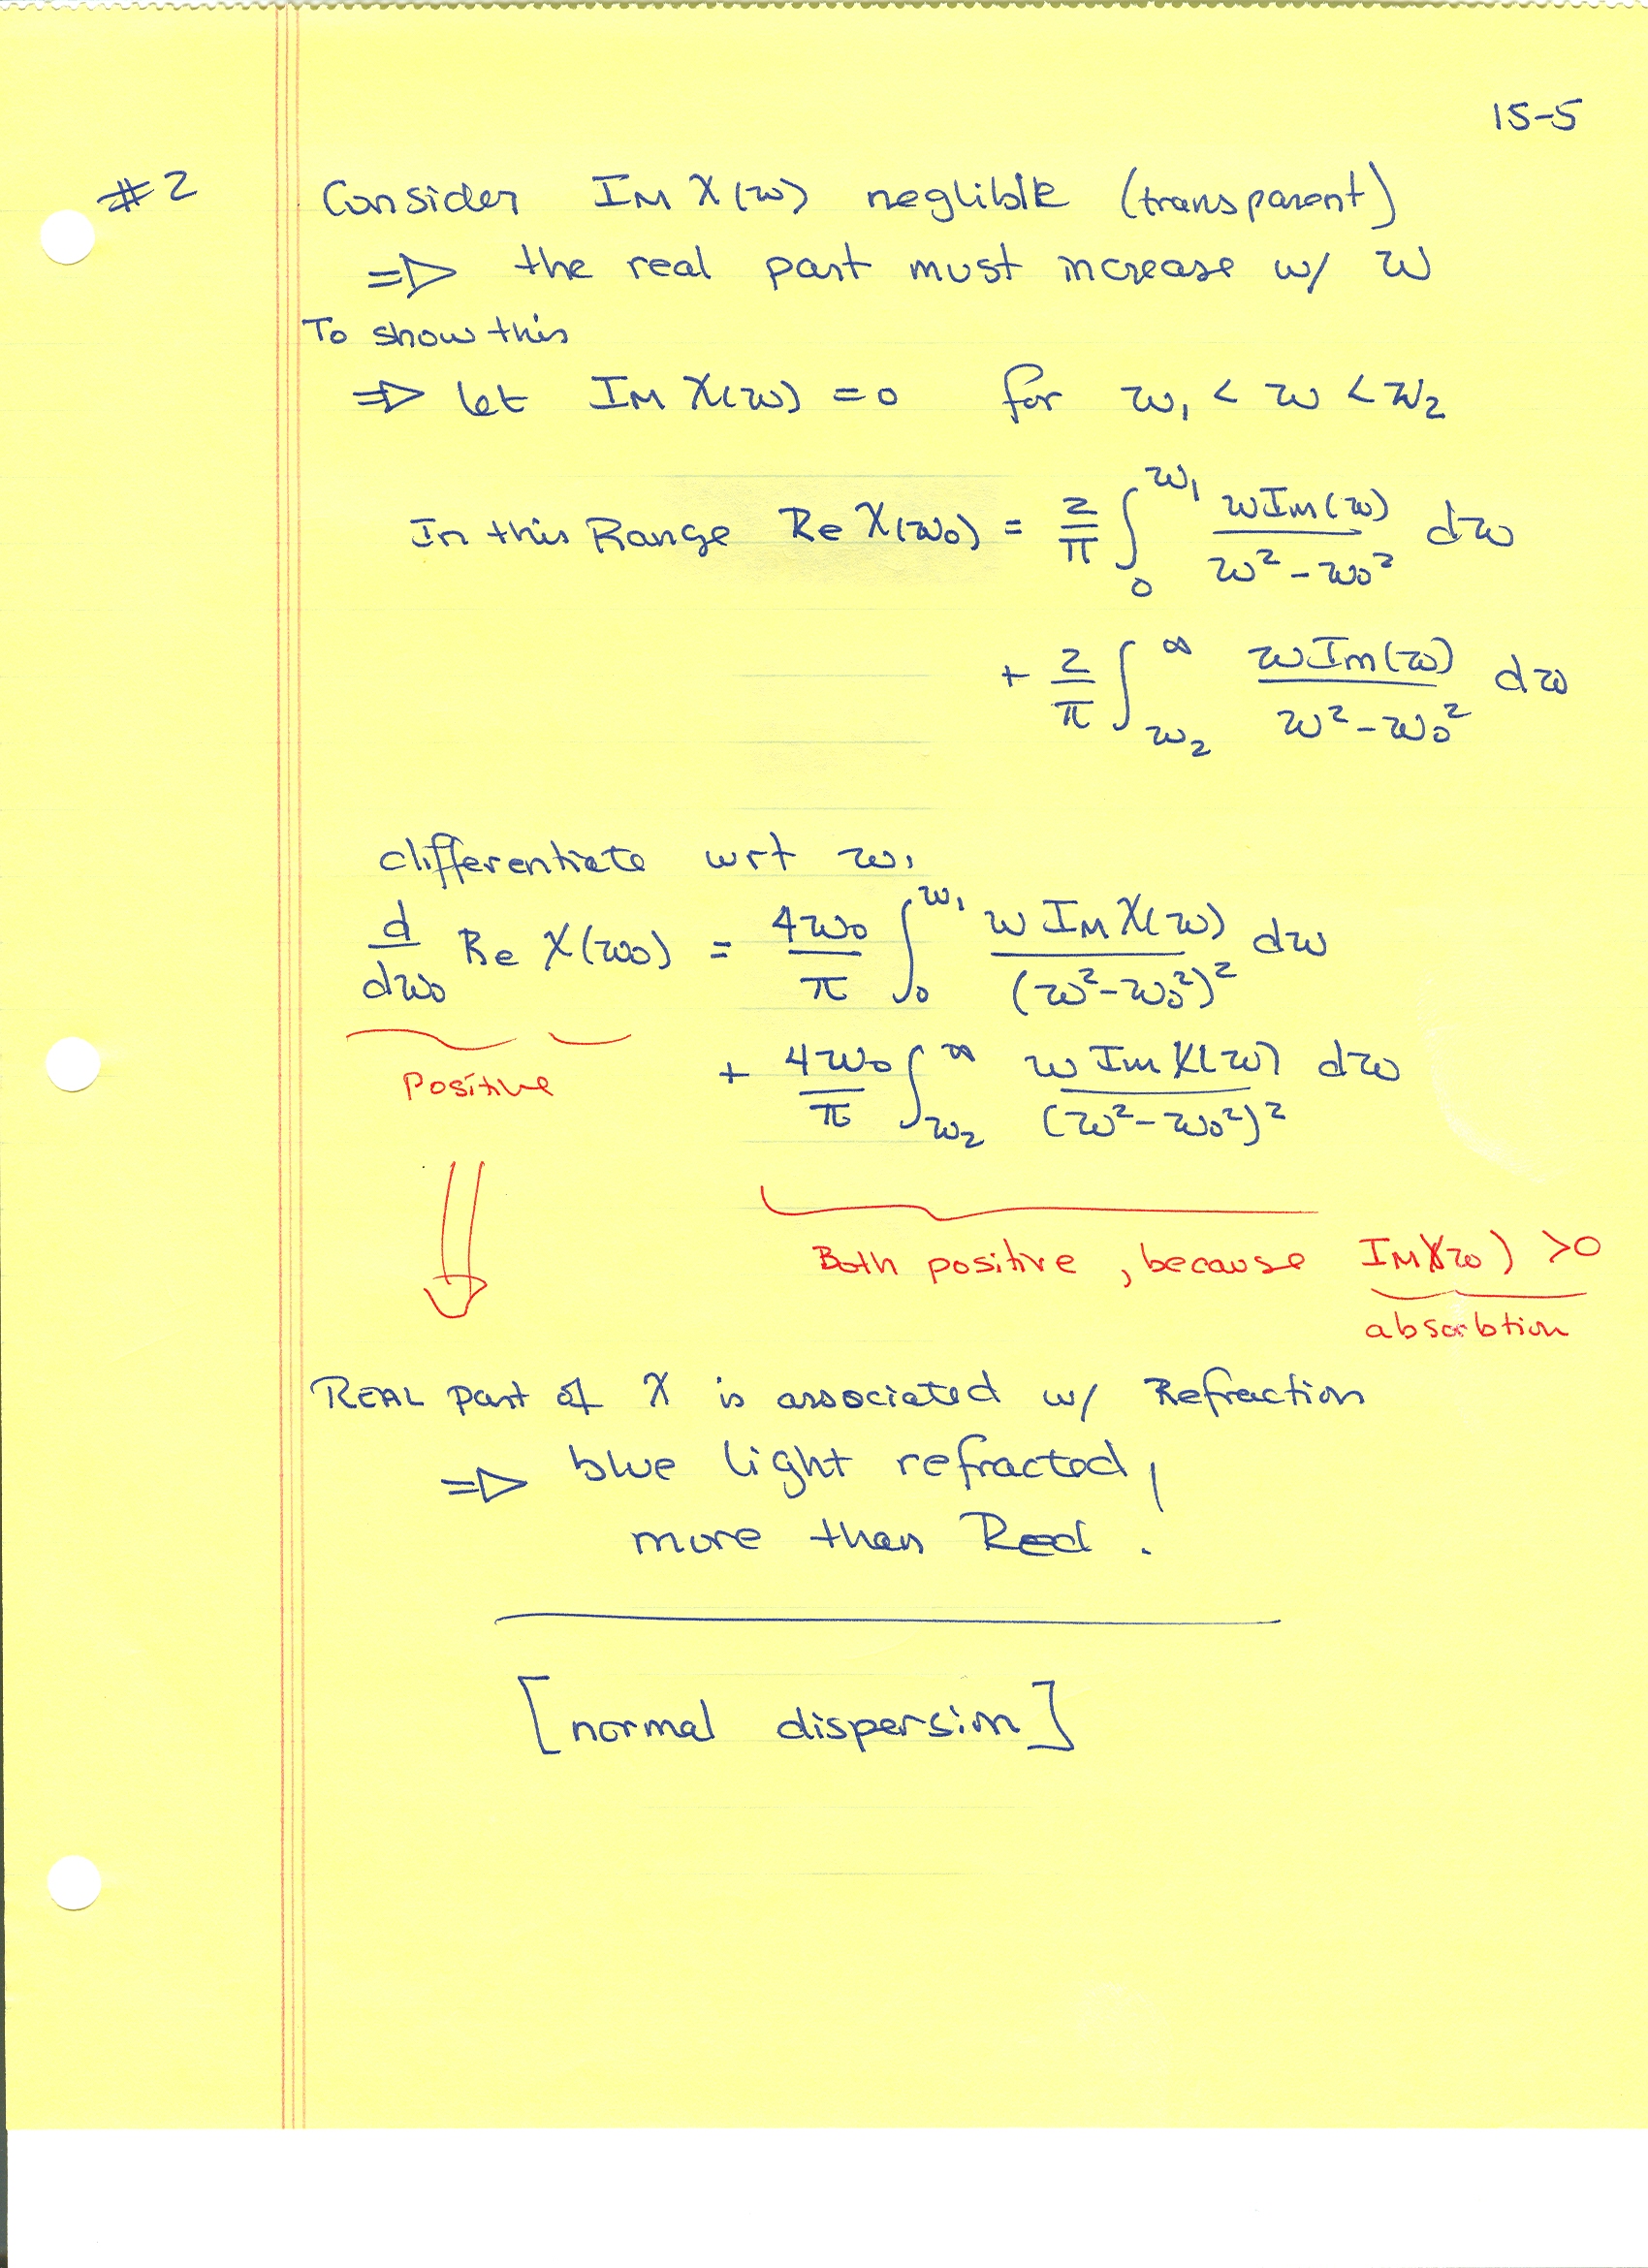 15-5
#2 Consider Im χ(ω) neglible (transparent)
⇒ the real part must increase w/ ω
To show this
⇒ let Im χ(ω) = 0 for ω₁ < ω < ω₂
In this Range Re χ(ω₀) = 2/π ∫₀^ω₁ ω Im(ω) / (ω² - ω₀²) dω
+ 2/π ∫_ω₂^∞ ω Im(ω) / (ω² - ω₀²) dω
differentiate wrt ω₁
d/dω₀ Re χ(ω₀) = 4ω₀/π ∫₀^ω₁ ω Im χ(ω) / (ω² - ω₀²)² dω
+ 4ω₀/π ∫_ω₂^∞ ω Im χ(ω) / (ω² - ω₀²)² dω
Positive
Both positive, because Im χ(ω) > 0
absorbtion
REAL part of χ is associated w/ Refraction
⇒ blue light refracted,
more than Red.
[normal dispersion]